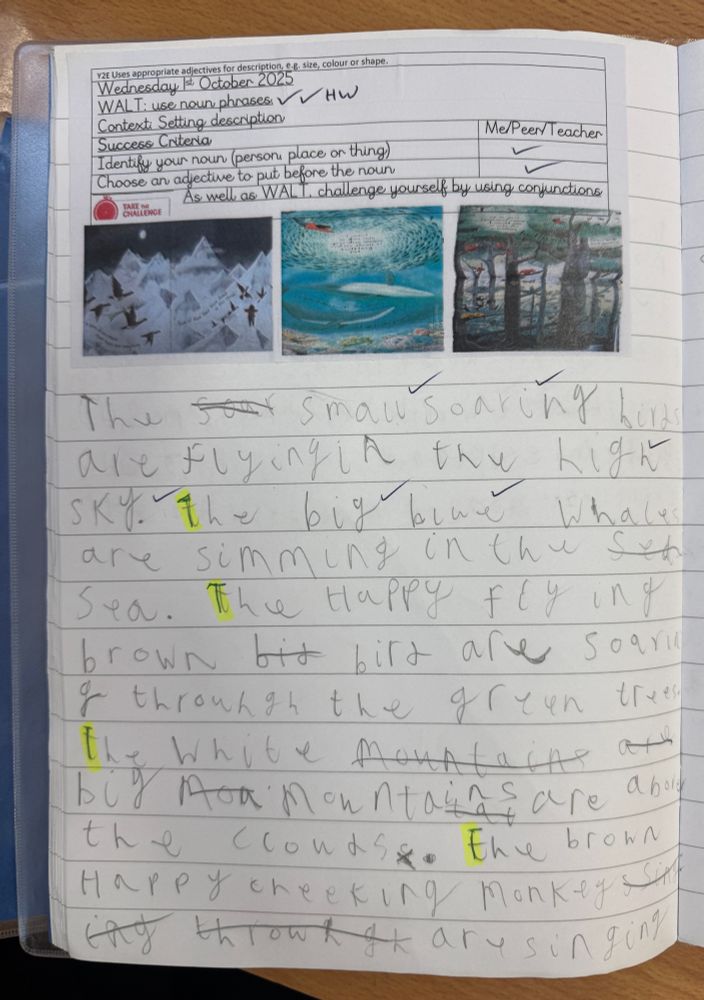 Y2E Uses appropriate adjectives for description, e.g. size, colour or shape.
Wednesday 1st October 2025
WALT: use noun phrases. HW
Context: Setting description
Success Criteria Me/Peer/Teacher
Identify your noun (person, place or thing)
Choose an adjective to put before the noun
TAKE THE CHALLENGE As well as WALT, challenge yourself by using conjunctions
The small soaring birds
are flyingin the high
sky. The big blue whales
are simming in the sea
sea. The Happy flying
brown bird are soarin
g throuhgh the green trees.
the white mountains are
big mountains are above
the clouds. the brown
Happy cheeking monkeys
are singing